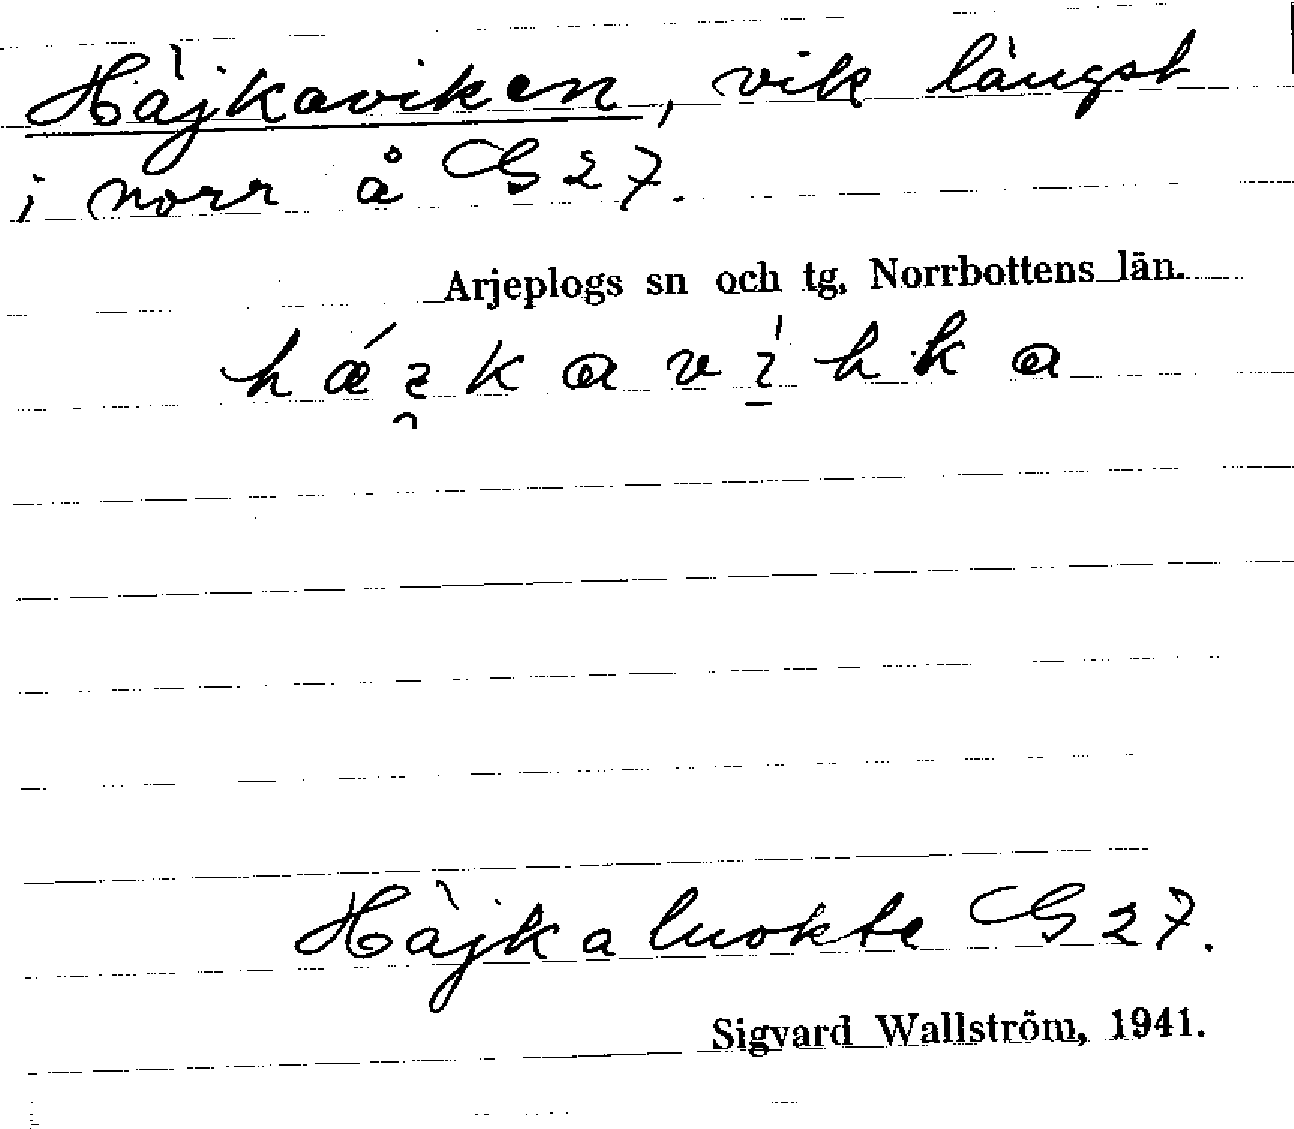 Hàjkaviken, vik längst
i norr å G27.
Arjeplogs sn och tg, Norrbottens län.
Hàjkaluokte G27.
Sigvard Wallström, 1941.